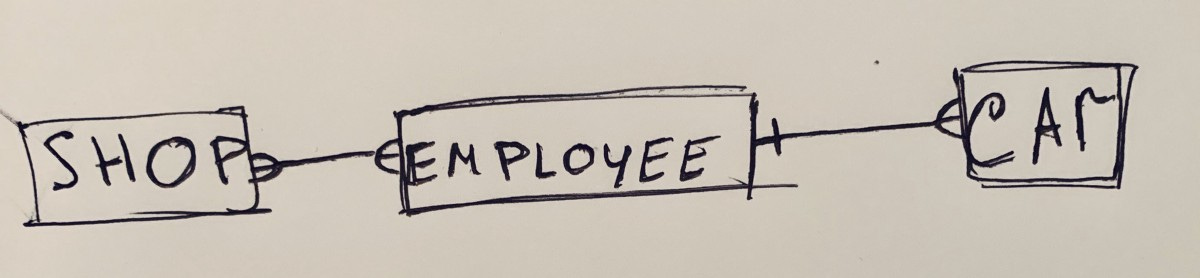 SHOP
EMPLOYEE
CAr